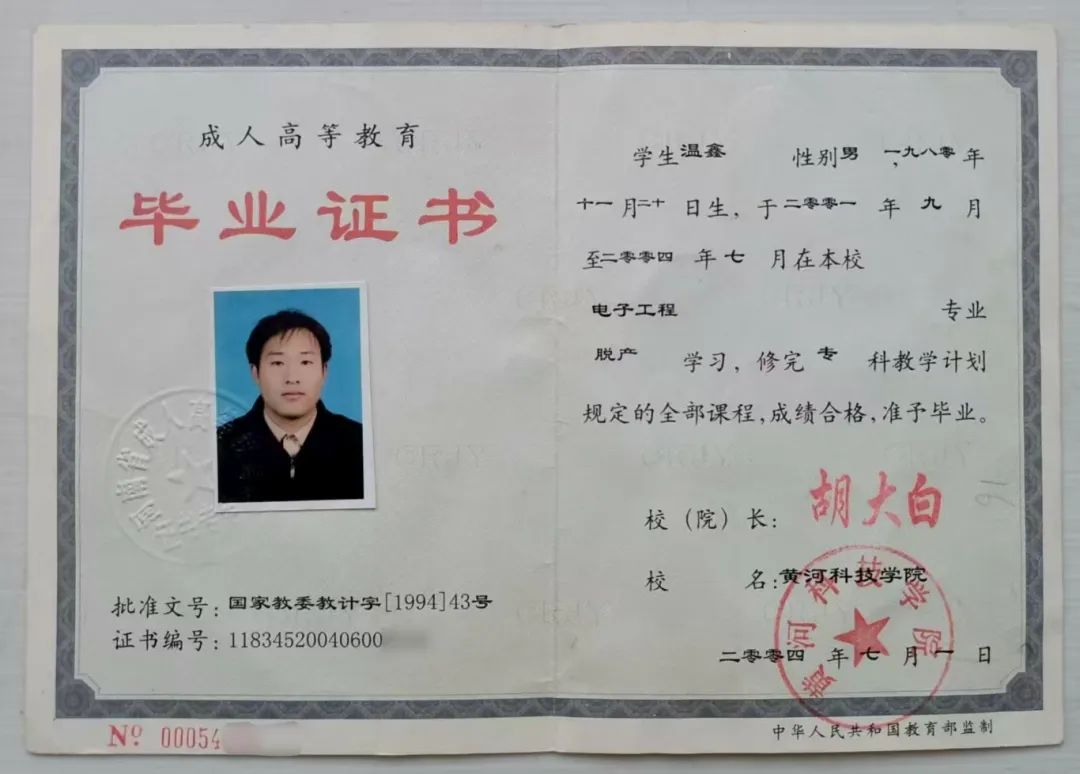 成人高等教育
毕业证书
批准文号：国家教委教计字[1994]43号
证书编号：11834520040600
№ 00054
学生温鑫 性别男，一九八零年
十一月二十日生，于二零零一年九月
至二零零四年七月在本校
电子工程 专业
脱产 学习，修完专科教学计划
规定的全部课程，成绩合格，准予毕业。
校（院）长：胡大白
校 名：黄河科技学院
黄河科技学院
二零零四年七月一日
中华人民共和国教育部监制